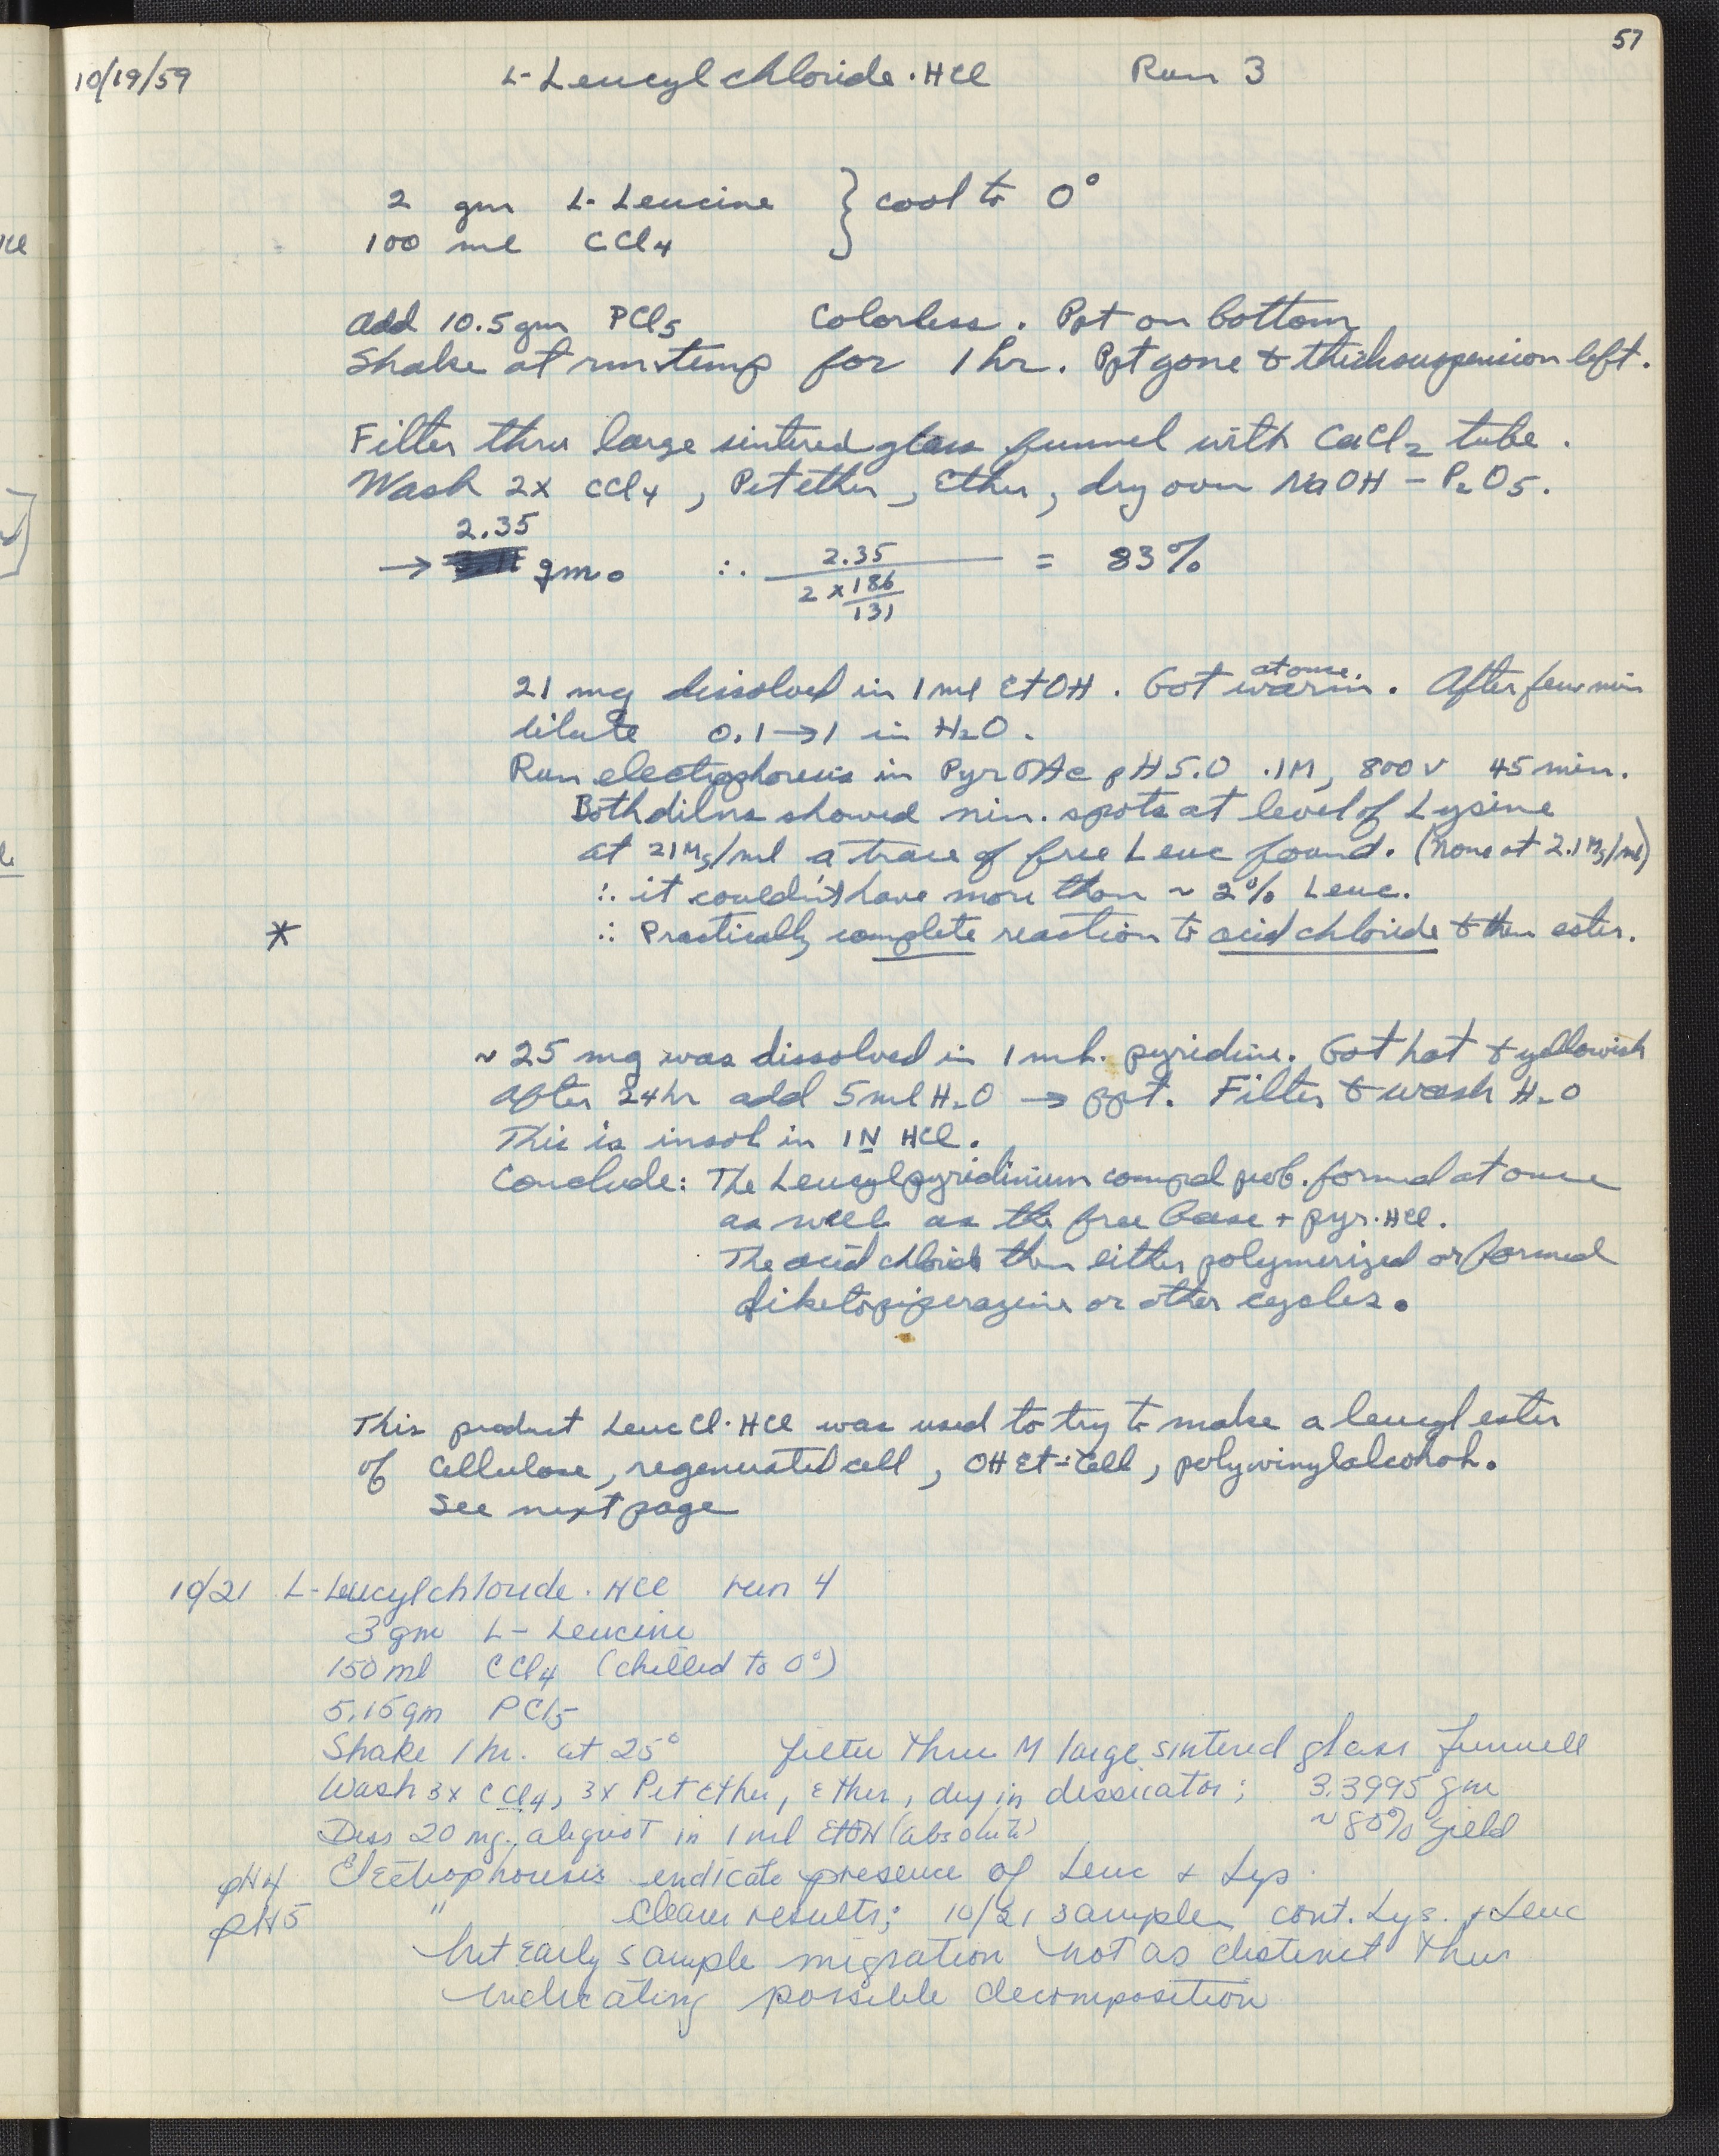 57
10/19/59 L-Leucylchloride·HCl Run 3
2 gm L-Leucine } cool to 0°
100 ml CCl4
Add 10.5 gm PCl5 Colorless. Ppt on bottom
Shake at rm temp for 1 hr. Ppt gone & thick suspension left.
Filter thru large sintered glass funnel with CaCl2 tube.
Wash 2x CCl4, Pet ether, Ether, dry over NaOH - P2O5.
2.35
→ gm. ∴ 2.35 / 2 x 186/131 = 83%
21 mg dissolved in 1 ml EtOH. Got warm at once. After few min
dilute 0.1→1 in H2O.
Run electrophoresis in PyrOAc pH 5.0 .1M, 800 v 45 min.
Both dilns showed nin. spots at level of Lysine
at 21 Mg/ml a trace of free Leuc found. (none at 2.1 Mg/ml)
∴ it couldn't have more than ~ 2% Leuc.
* ∴ Practically complete reaction to acid chloride & then ester.
~ 25 mg was dissolved in 1 ml. pyridine. Got hot & yellowish
After 24 hr add 5 ml H2O → ppt. Filter & wash H2O
This is insol in 1N HCl.
Conclude: The Leucylpyridinium compd prob. formed at once
as well as the free base + pyr·HCl.
The acid chloride then either polymerized or formed
diketopiperazine or other cycles.
This product LeucCl·HCl was used to try to make a leucyl ester
of Cellulose, regenerated cell, OHEt-Cell, polyvinylalcohol.
See next page
10/21 L-Leucylchloride·HCl run 4
3 gm L-Leucine
150 ml CCl4 (chilled to 0°)
5.15 gm PCl5
Shake 1 hr. at 25° filter thru M large sintered glass funnell
Wash 3x CCl4, 3x Pet Ether, Ether, dry in dessicator; 3.3995 gm
Diss 20 mg. aliquot in 1 ml EtOH (absolute) ~80% yield
pH4 Electrophoresis indicate presence of Leuc & Lys.
pH5 " Clearer results; 10/21 sample cont. Lys. & Leuc
but early sample migration not as distinct thus
indicating possible decomposition